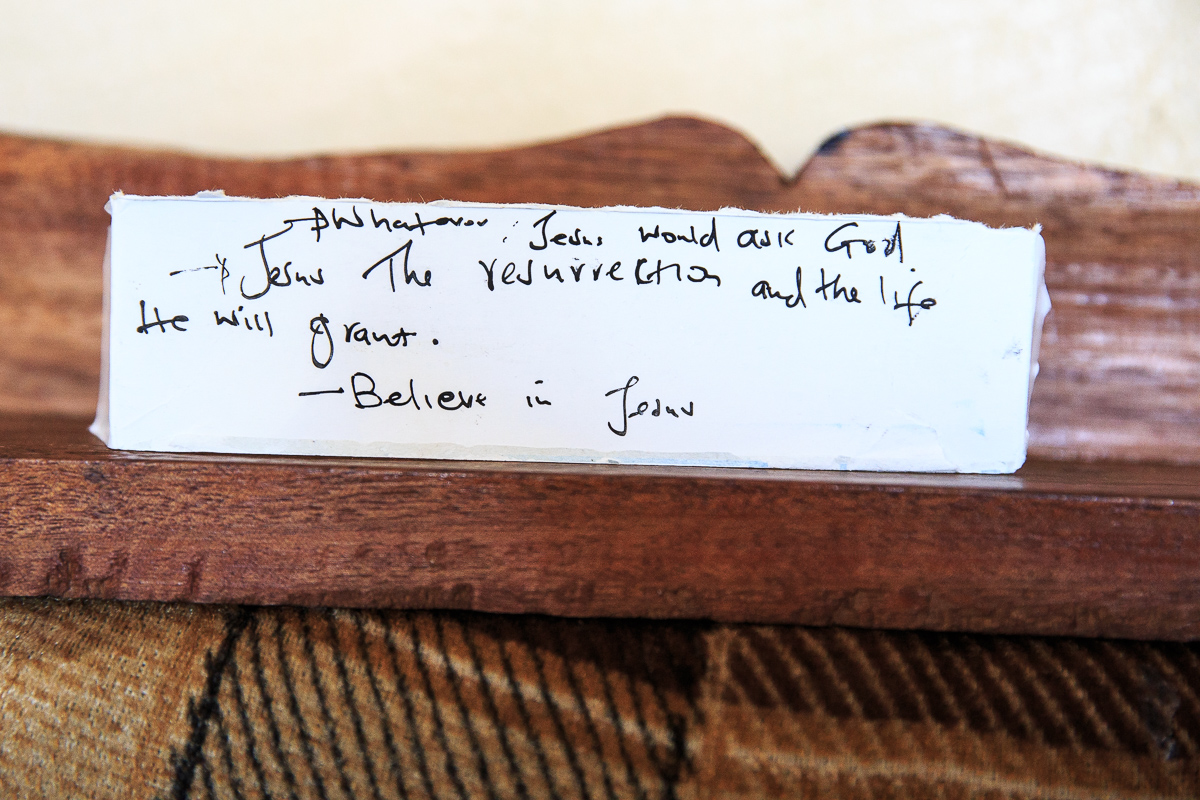 → Whatever : Jesus would ask God.
→ Jesus The resurrection and the life
He will grant.
— Believe in Jesus